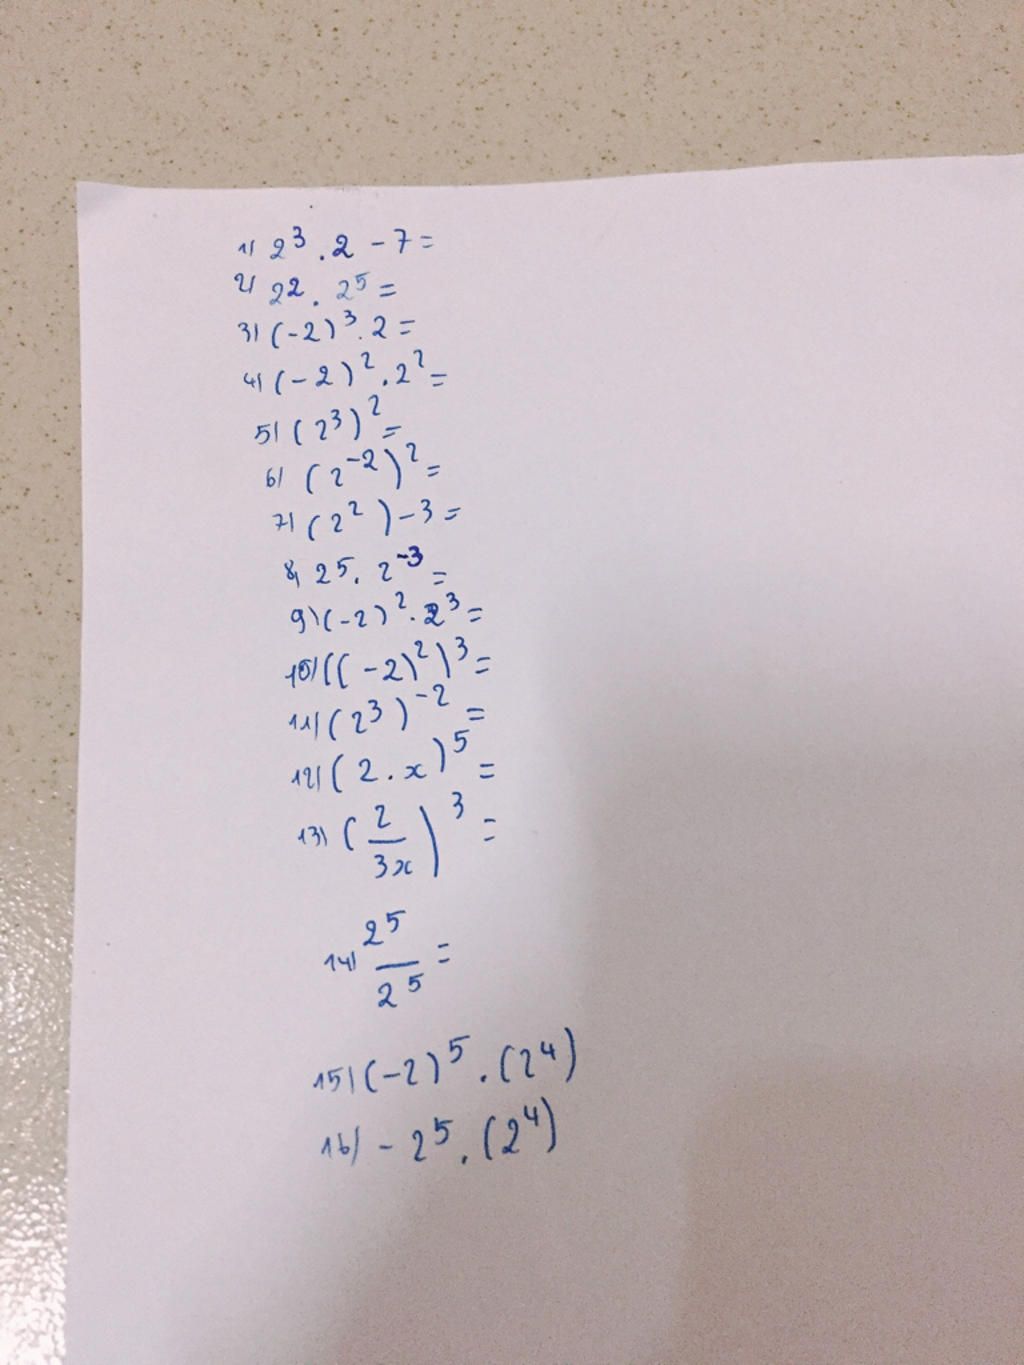 1) 2³ . 2 - 7 =
2) 22 . 2⁵ =
3) (-2)³ . 2 =
4) (-2)² . 2² =
5) (2³)² =
6) (2⁻²)² =
7) (2²) - 3 =
8) 25 . 2⁻³ =
9) (-2)² . 2³ =
10) ((-2)²)³ =
11) (2³)⁻² =
12) (2 . x)⁵ =
13) (2/3x)³ =
14) 2⁵/2⁵ =
15) (-2)⁵ . (2⁴)
16) - 2⁵ . (2⁴)